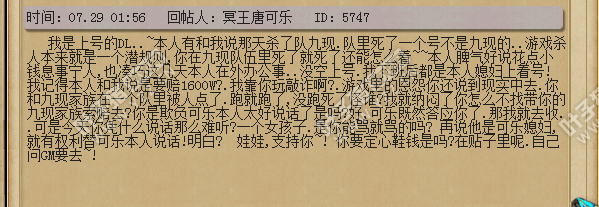 时间：07.29 01:56 回帖人：冥王唐可乐 ID：5747
我是上号的DL..~本人有和我说那天杀了队九现.队里死了一个号不是九现的..游戏杀
人本来就是一个潜规则.你在九现队伍里死了就死了还能怎么着~~本人脾气好说花点小
钱息事宁人,也凑巧这几天本人在外办公事..没空上号.找不到后都是本人媳妇上看号!
我记得本人和我说是要赔1600W?.我靠你玩敲诈啊?.游戏里的恩怨你还说到现实中去.你
和九现家族在一个队里被人点了.跑就跑了,没跑死了怪谁?我就纳闷了你怎么不找带你的
九现家族索赔去?你是欺负可乐本人太好说话了是吗?好.可乐既然答应你了.那我就去收
.可是今天你凭什么说话那么难听?一个女孩子.是你能骂就骂的吗?再说他是可乐媳妇,
就有权利替可乐本人说话!明白? 娃娃,支持你~! 你要定心鞋钱是吗?在贴子里呢.自己
问GM要去~!